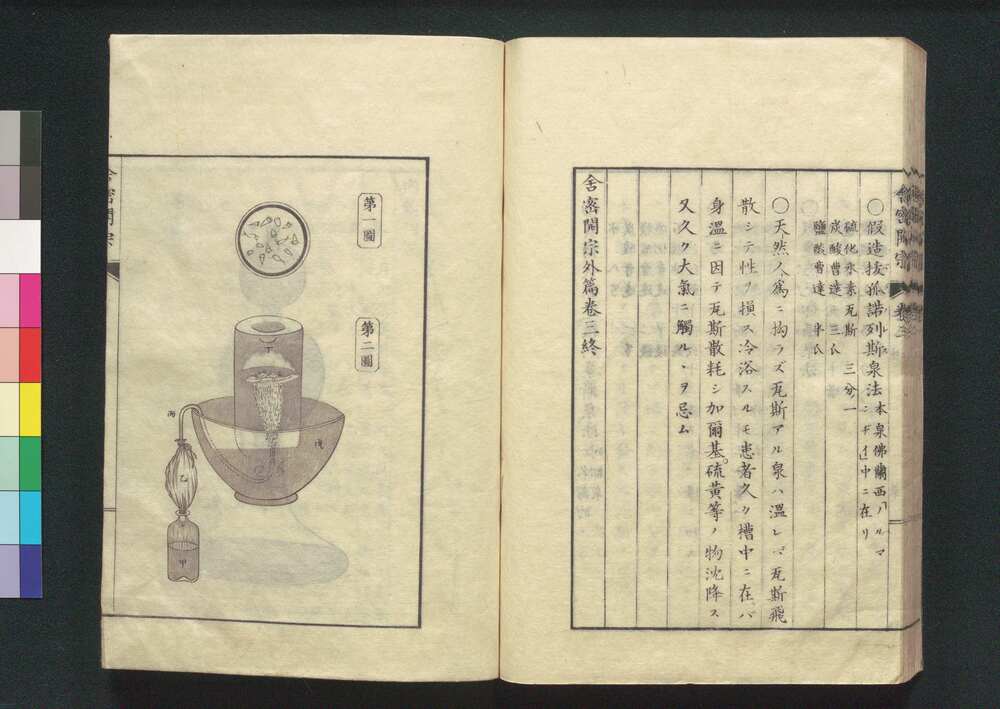 舍密開宗 卷三
〇假造拔孤諾列斯泉法 本泉佛蘭西ノルマ
ンヂイ中ニ在リ
硫化水素瓦斯 三分一
炭酸曹達 三氏
鹽酸曹達 半氏
〇天然人爲ニ拘ラズ瓦斯アル泉ハ溫レバ瓦斯飛
散シテ性ヲ損ス冷浴スルモ患者久ク槽中ニ在バ
身溫ニ因テ瓦斯散耗シ加爾基。硫黃等ノ物沈降ス
又久ク大氣ニ觸ルヽヲ忌ム
舍密開宗外篇卷三終
第一圖
第二圖
丁
丙
戊
乙
甲
舍密開宗